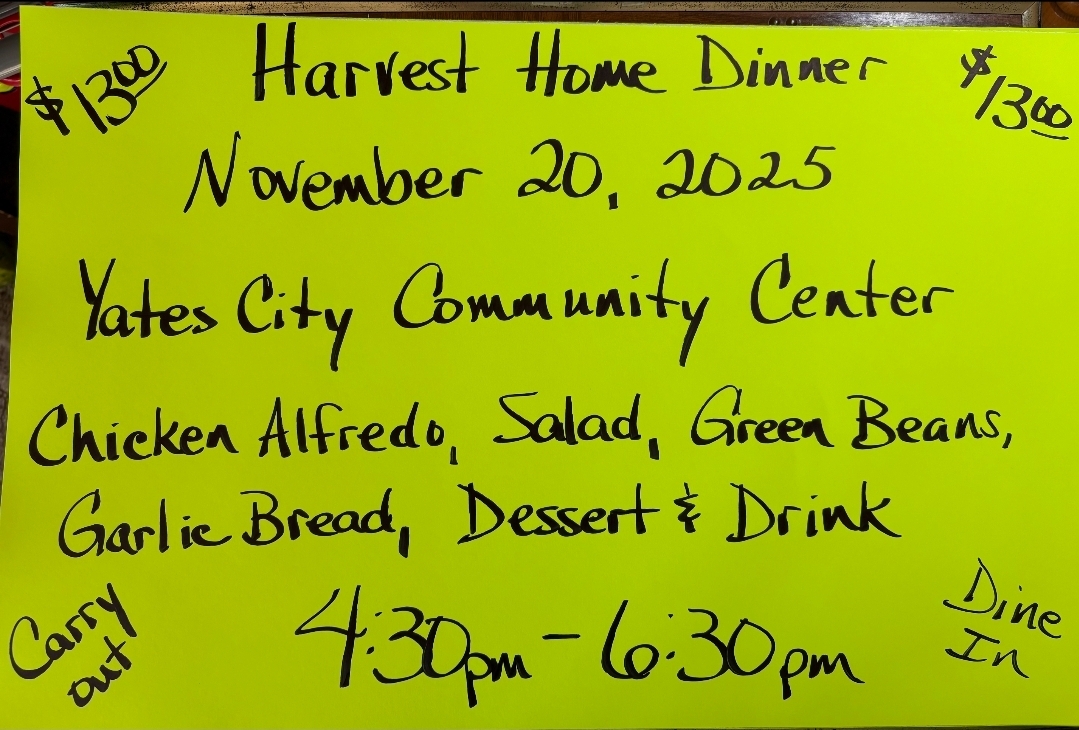 $13.00 Harvest Home Dinner $13.00
November 20, 2025
Yates City Community Center
Chicken Alfredo, Salad, Green Beans,
Garlic Bread, Dessert & Drink
Carry out
4:30pm - 6:30pm
Dine In